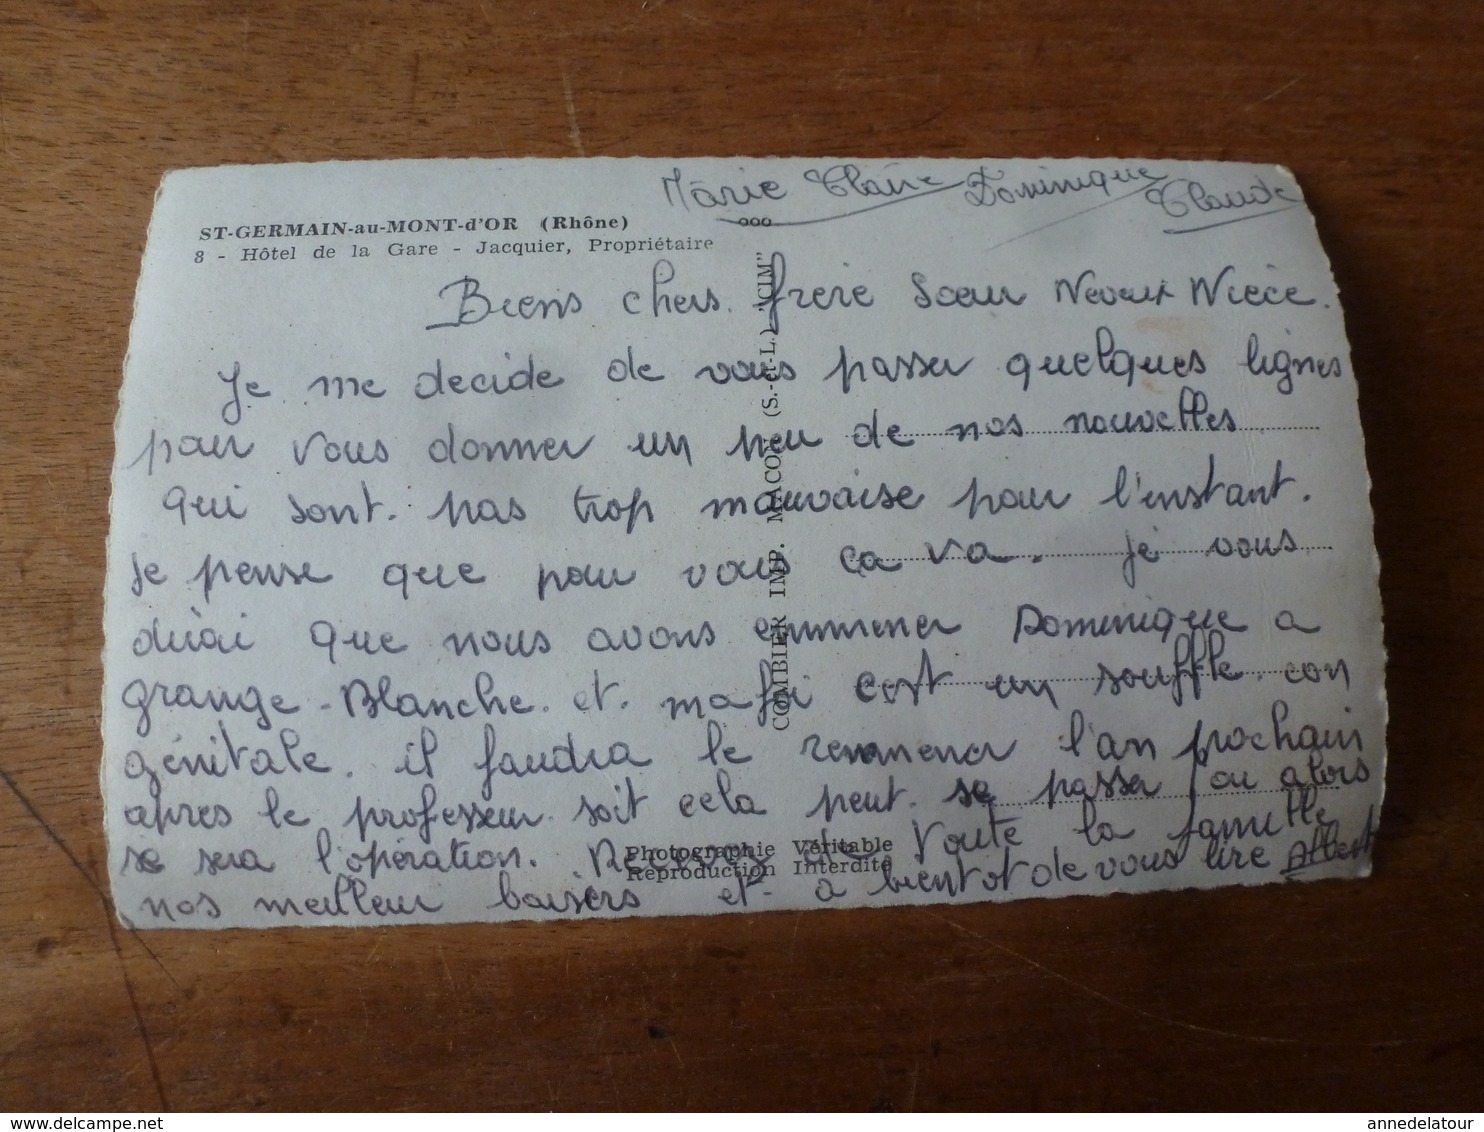 Marie Claire Dominique Claude
ST-GERMAIN-au-MONT-d'OR (Rhône)
8 - Hôtel de la Gare - Jacquier, Propriétaire
Biens chers frère Soeur Neveux Nièce.
Je me decide de vous passer quelques lignes
pour vous donner un peu de nos nouvelles
qui sont. pas trop mauvaise pour l'instant.
Je pense que pour vous ca va. Je vous
dirai que nous avons emmener Dominique a
grange-Blanche. et. ma foi cest un souffle con
génitale. il faudra le remmener l'an prochain
apres le professeur soit cela peut. se passer ou alors
se sera l'opération. Recevez de toute la famille
nos meilleur baisers et a bientot de vous lire Albert
COMBIER IMP. MACON (S.-et-L.) "CIM"
Photographie Véritable
Reproduction Interdite
annedelatour